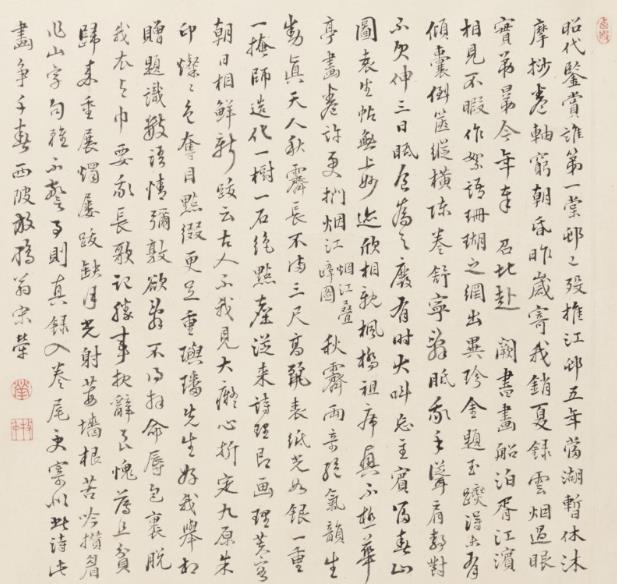 昭代鑒賞誰第一棠邨已歿推江邨五年當湖暫休沐
摩挲卷軸窮朝昏昨歲寄我銷夏錄雲烟過眼
寶弟晜今年奉召北赴闕書畫船泊胥江濱
相見不暇作絮語珊瑚之網出異珍金題玉躞得未有
傾囊倒篋縱橫陳卷舒寧辭胝我手聳肩靜對
不欠伸三日眠食爲之廢有時大叫忘主賓富春山
圖袁生帖無上妙迹欣相親楓橋祖席興不極華
亭畫卷許更捫烟江烟江疊嶂圖秋霽兩奇絕氣韻生
動真天人秋霽長不滿三尺高麗表紙光如銀一重
一掩師造化一樹一石絕點塵從来詩理即画理黃
朝日相鮮新跋云古人不我見大癡心折定九原朱
印燦々色奪目點綴更足重璵璠先生好我舉相
贈題識數語情彌敦欲辭不得拜命辱包裹脫
我衣与巾要我長歌記勝事拙辭良愧薄且貧
歸来重展燭屢跋缺月光射莓墻根苦吟攢眉
作山字句雖不驚則真錄入卷尾更寄似此詩此
畫爭千春西陂放鴨翁宋犖